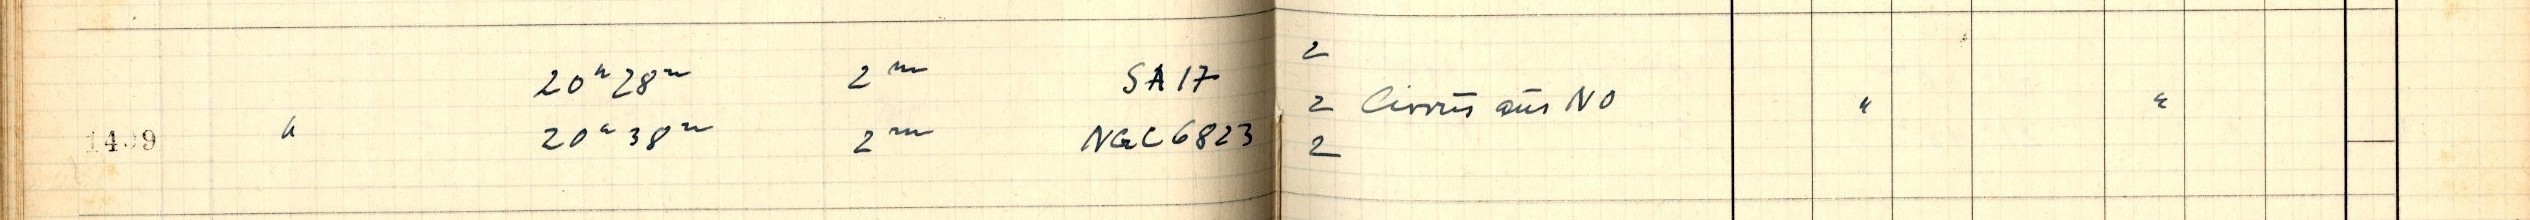 2
20ʰ28ᵐ 2ᵐ SA 17
2 Cirrus aus NO " "
1409 " 20ʰ38ᵐ 2ᵐ NGC 6823 2